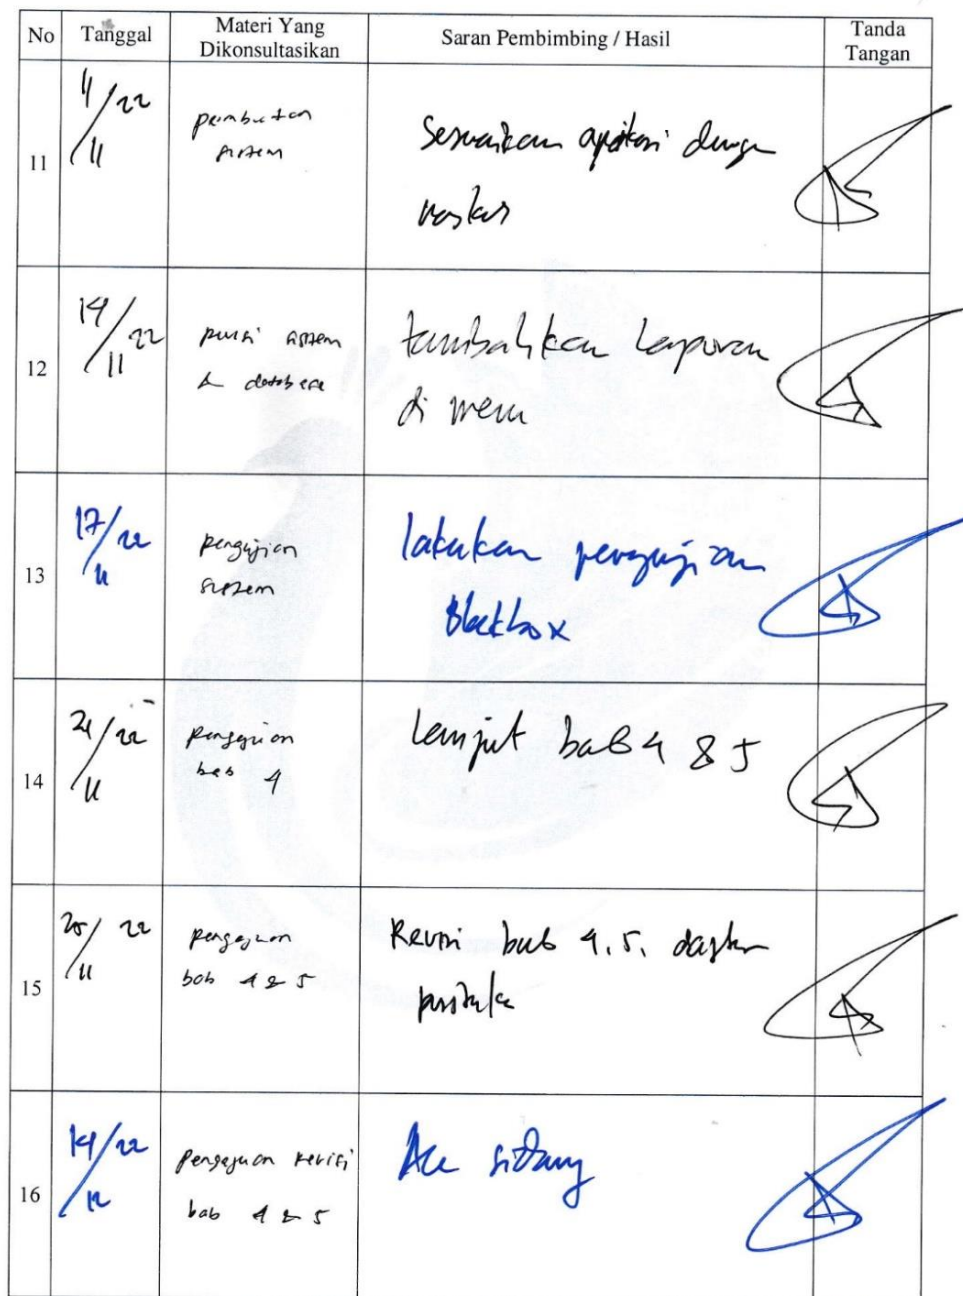 No Tanggal Materi Yang Dikonsultasikan Saran Pembimbing / Hasil Tanda Tangan
11 11/11 22 pembuatan sistem Sesuaikan aplikasi dengan
naskah
12 14/11 22 sistem & database tambahkan Laporan
di menu
13 17/11 22 pengujian sistem lakukan pengujian
Blackbox
14 21/11 22 pengajuan bab 4 Lanjut bab 4 & 5
15 25/11 22 pengajuan bab 4 & 5 Revisi bab 4, 5, daftar
pustaka
16 14/12 22 pengajuan revisi bab 4 & 5 Acc sidang